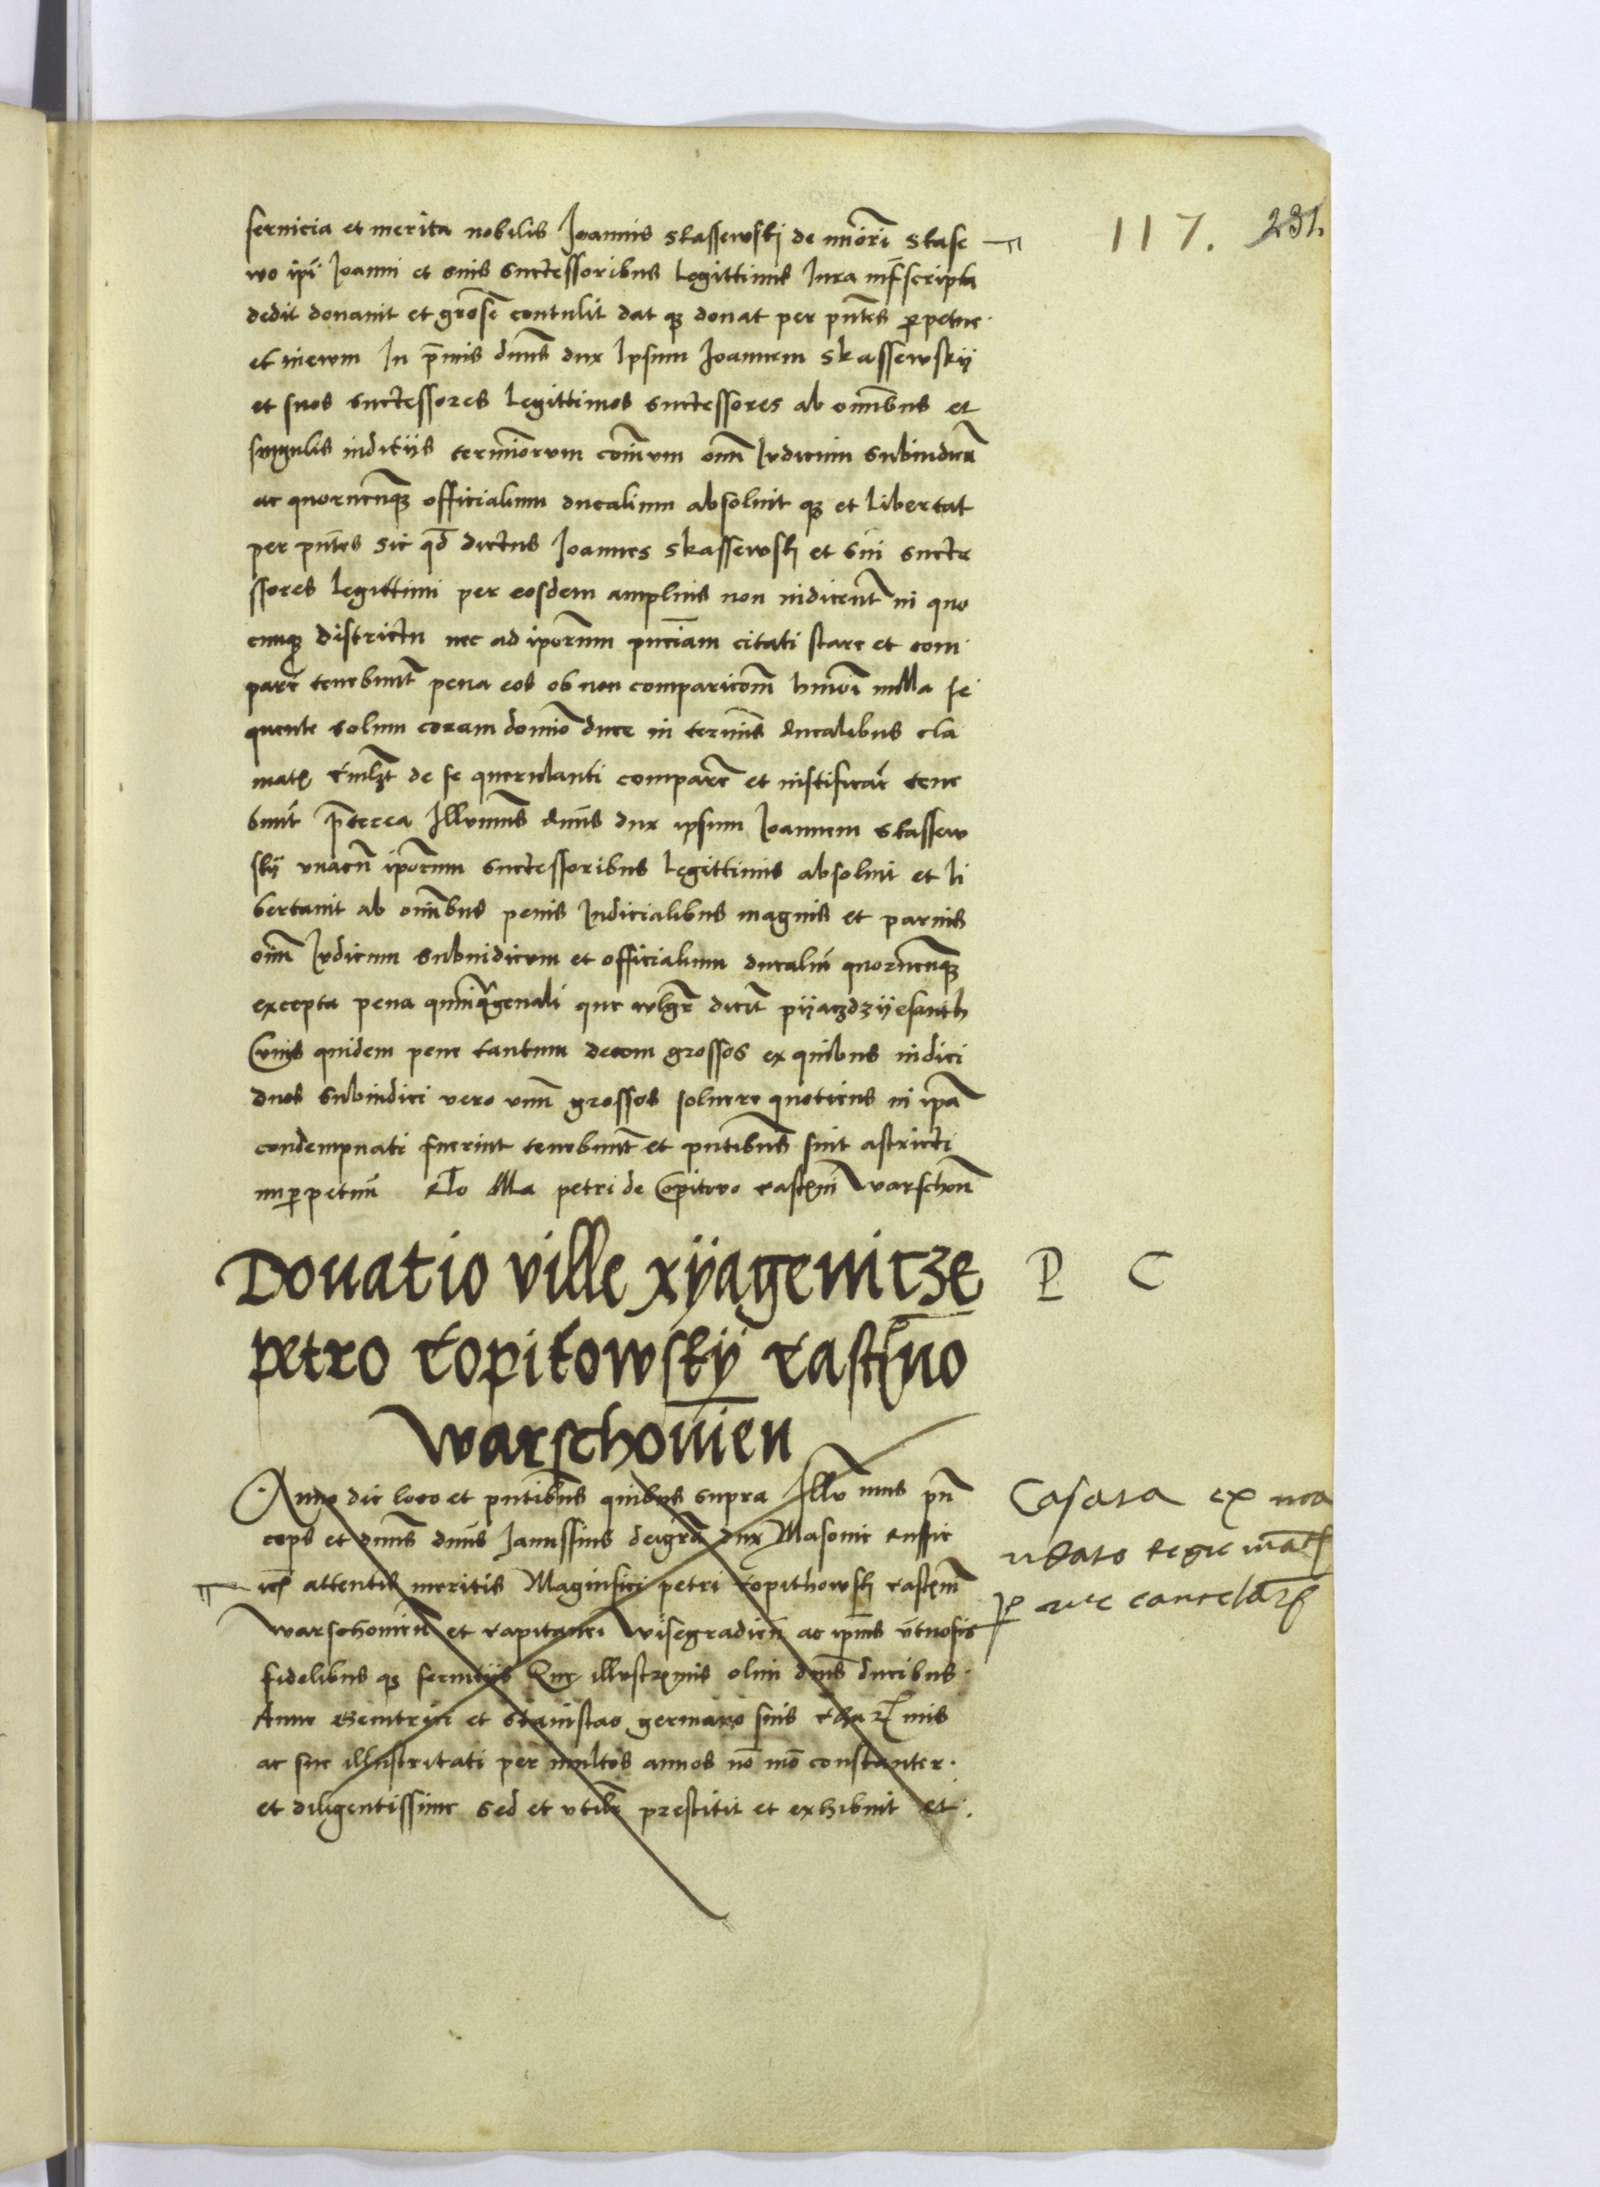 117. 231.
seruicia et merita nobilis Joannis Skassewski de minori Skase
wo ipi Joanni et suis successoribus legittimis Iura infrscripta
dedit donauit et grose contulit dat qz donat per pntes perpetue
et in ewm In primis dnus dux Ipsum Joannem Skassewskij
et suos successores legittimos successores ab omnibus et
singulis inditijs terminorum coium omn Judicum subindicu
ac quorumcunqz officialium ducalium absoluit qz et libertat
per pntes sic qd dictus Joannes Skassewski et sui succe
ssores legittimi per eosdem amplius non iudicent in quo
cunqz districtu nec ad iporum pnciam citati stare et com
pare tenebunt pena eos ob non comparicom hmoi nulla se
quente solum coram domino duce in terminis ducalibus cla
mati de se querulanti compare et iustificare tene
bunt preterea Illumus dnus dux ipsum Joannem Skassew
skij vnacu iporum successoribus legittimis absoluit et li
bertauit ab omnibus penis Iudicialibus magnis et paruis
omn Judicum subiudicum et officialium ducaliu quorucunqz
excepta pena quinquagenali que wlgr dicit pijaczdzijesanth
Cuius quidem pene tantum decem grossos ex quibus iudici
duos subiudici vero vnu grossos soluere quotiens in ipa
condempnati fuerint tenebunt et pntibus sint astricti
inperpetuu Rlo Ma petri de Copitowo castni warschoun
Donatio ville xijagenicze
P C
petro Copitowskij castno
warschouien
Anno die loco et pntibus quibus supra Illu mus prn
ceps et dnus dnus Janussius dei gra dux Masouie Russie
etc attentis meritis Magnifici petri Copithowski castni
warschouien et capitanei wisegradien ac ipius vtuosis
fidelibus qz seruitijs Que illustrimis olim dnis ducibus
Anne Genitrici et Stanislao germano suis charimis
ac sue illustritati per multos annos no mo constanter
et diligentissime sed et vtilr prestitit et exhibuit et
Casata ex ma
ndato Regie matis
per me cancelar